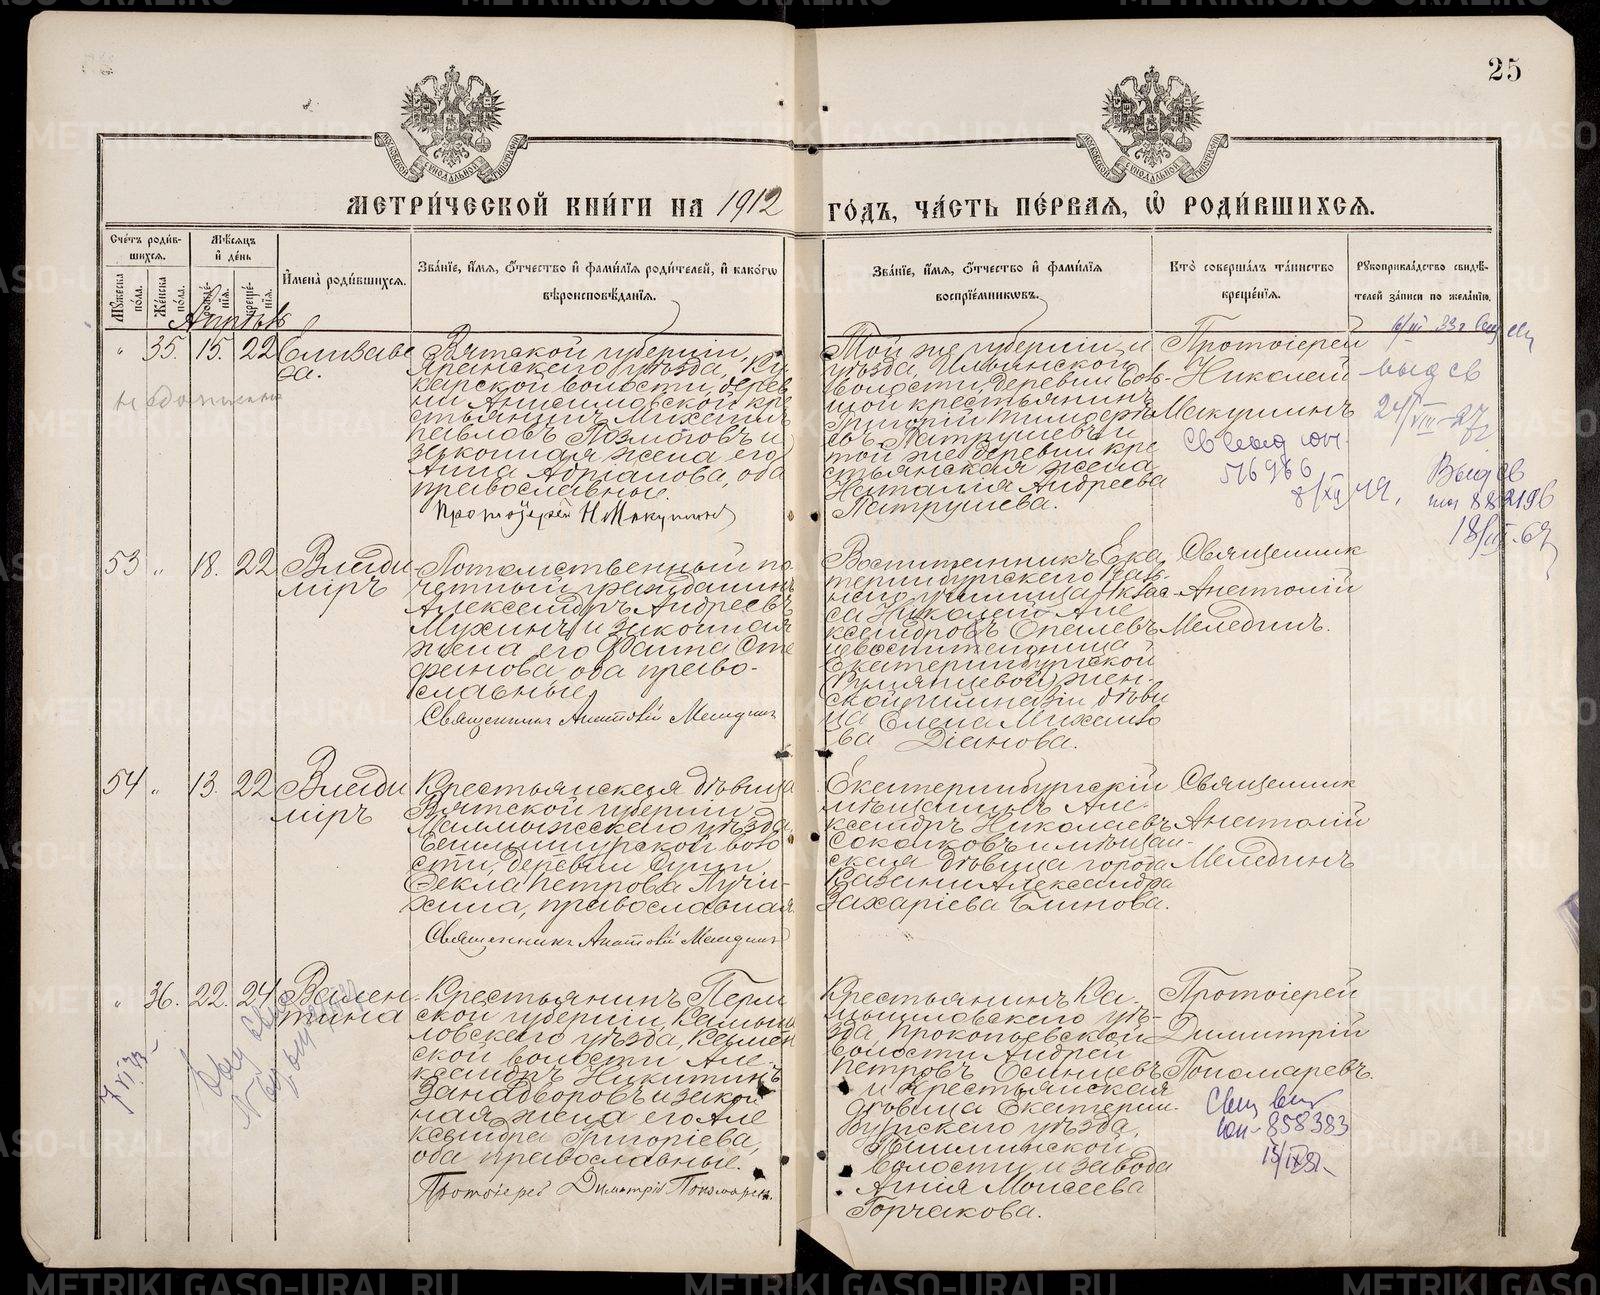 25
МЕТРИ́ЧЕСКОЙ КНИ́ГИ НА 1912 ГО́ДЪ, ЧА́СТЬ ПЕ́РВАЯ, Ѡ РОДИ́ВШИХСЯ.
Сче́тъ роди́в-
шихся.
Мꙋ́жеска по́ла.
Же́нска по́ла.
Мѣ́сяцъ
и де́нь
рожде́-
нїя.
креще́-
нїя.
Имена̀ роди́вшихся.
Зва́нїе, и́мя, ѻ́тчество и фами́лїя роди́телей, и како́гѡ
вѣроисповѣ́данїя.
Зва́нїе, и́мя, ѻ́тчество и фами́лїя
воспрїе́мникѡвъ.
Кто̀ соверша́лъ та́инство
креще́нїя.
Рꙋкоприкла́дство свидѣ́-
телей за́писи по жела́нїю.
Апрѣль
„ 35. 15. 22
Елизаве
та.
Вятской губерніи,
Яранскаго уѣзда, Ку
карской волости, дерев
ни Анисимовской кре
стьянинъ Михаилъ
Павловъ Позмоговъ и
законная жена его
Анна Адріанова, оба
православные.
Протоіерей Н Макушинъ
Той же губерніи и
уѣзда, Ильинской
волости, деревни
крестьянинъ
Григорій
Патрушевъ и
той же деревни кре
стьянская жена
Наталія Андреева
Патрушева.
Протоіерей
Николай
Макушинъ
выд св
Выд св
18/III-67
53 „ 18. 22
Влади
міръ
Потомственный по
четный гражданинъ
Александръ Андреевъ
Мухинъ и законная
жена его Фаина Сте
фанова, оба право-
славные.
Священникъ Анатолій Мелединъ
Воспитанникъ Ека
теринбургскаго
училища
Николай Але
ксандровъ
и воспитанница
Екатеринбургской
женской
гимназіи дѣви
ца Елена Михаило
ва Діанова.
Священник
Анатолій
Мелединъ.
54 „ 13. 22
Влади
міръ
Крестьянская дѣвица
Вятской губерніи
Малмыжскаго уѣзда,
воло
сти, деревни
Фекла Петрова Лучи-
хина, православная
Священникъ Анатолій Меледин
Екатеринбургскій
мѣщанинъ Але-
ксандръ Николаевъ
Соколковъ и мѣщан-
ская дѣвица города
Казани Александра
Захаріева Блинова.
Священник
Анатолій
Мелединъ
„ 36. 22. 24
Вален-
тина
Крестьянинъ Перм
ской губерніи, Камыш
ловскаго уѣзда, Камен
ской волости Але-
ксандръ Никитинъ
Занадворовъ и закон
ная жена его Але
ксандра Григоріева,
оба православные.
Протоіерей Димитрій Пономаревъ.
Крестьянинъ Ка-
мышловскаго уѣ-
зда Прокопьевской
волости Андрей
Петровъ Осинцевъ
и крестьянская
дѣвица Екатерин-
бургскаго уѣзда,
Пышминской
волости и завода
Агнія Моисеева
Горчакова.
Протоіерей
Димитрій
Пономаревъ.
858383